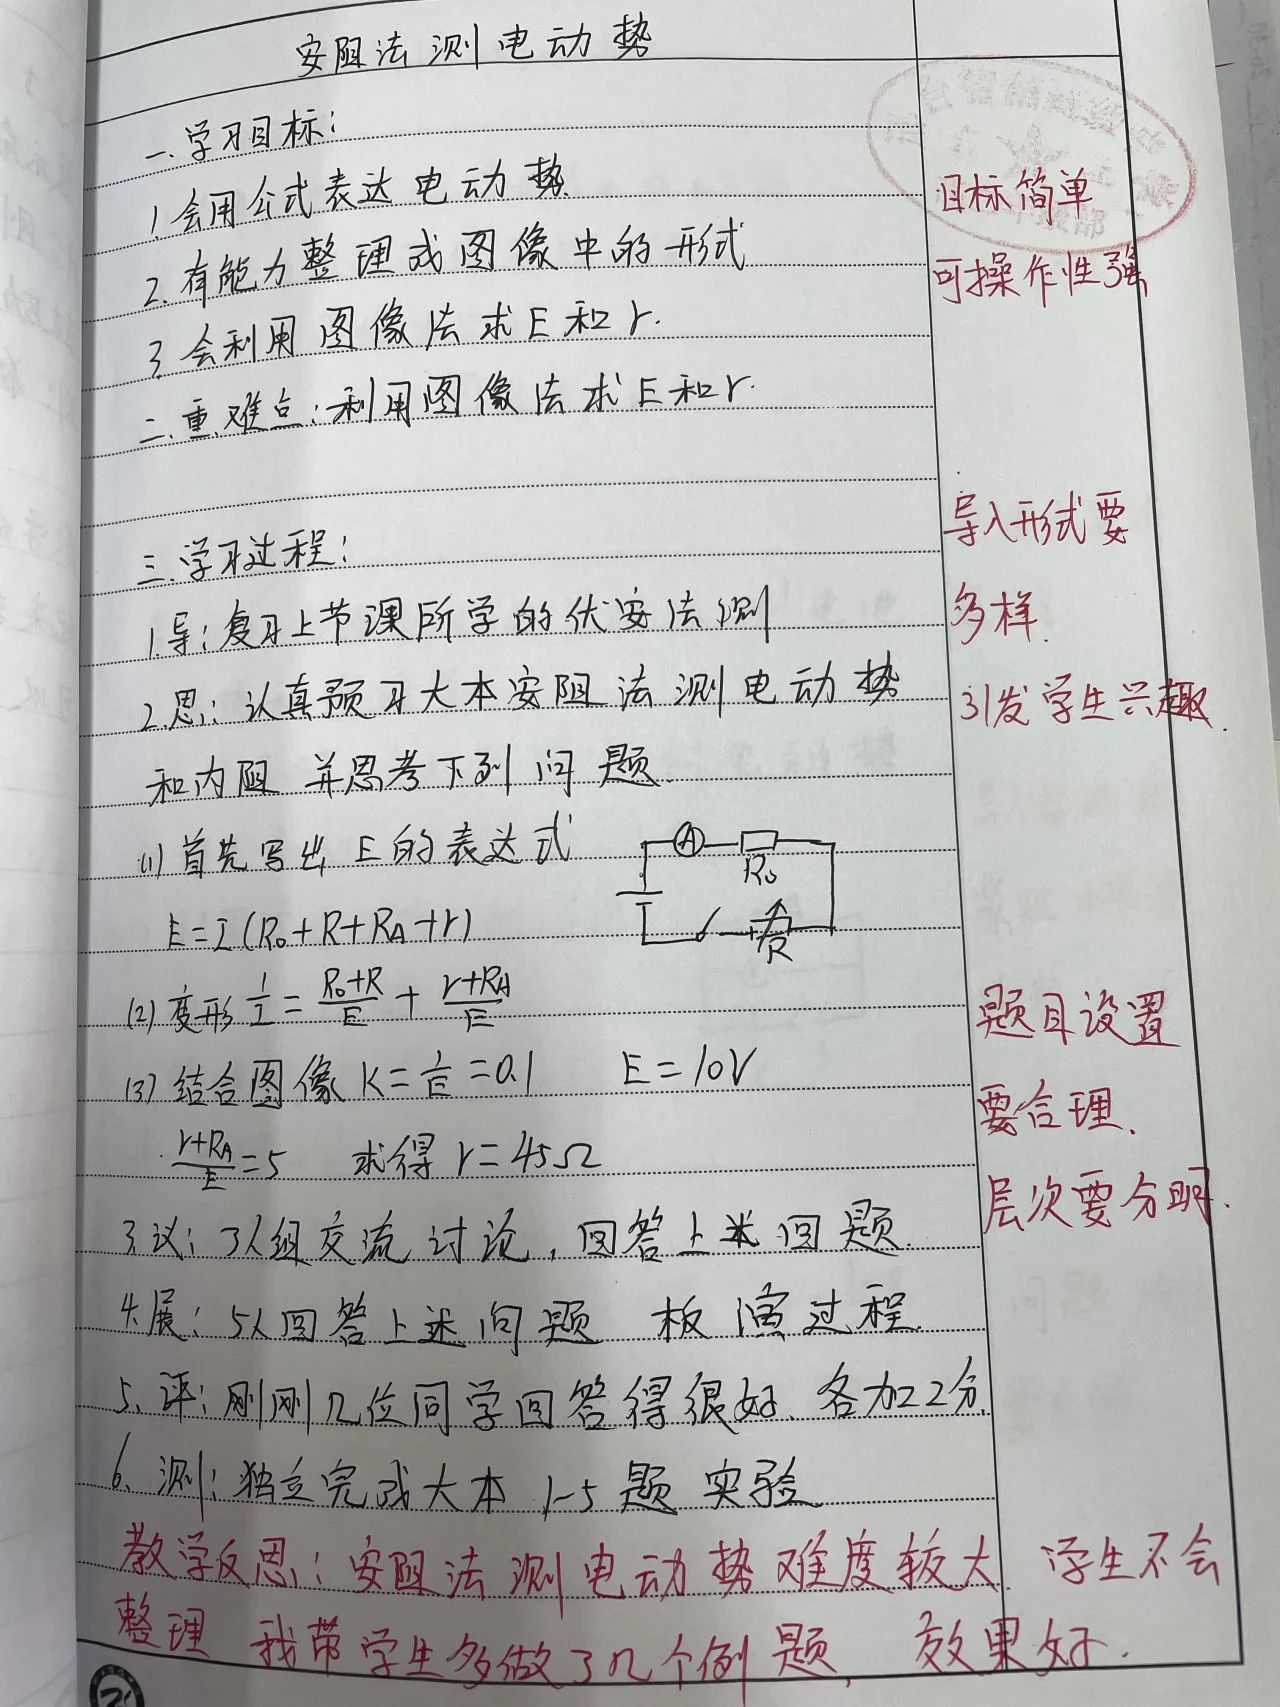 安阻法测电动势
一.学习目标:
1.会用公式表达电动势
目标简单
2.有能力整理成图像中的形式
可操作性强
3.会利用图像法求E和r.
二.重.难点:利用图像法求E和r.
三.学习过程:
导入形式要
1.导:复习上节课所学的伏安法测
多样.
2.思:认真预习大本安阻法测电动势
引发学生兴趣.
和内阻 并思考下列问题.
(1)首先写出E的表达式
A
R₀
R
E=I(R₀+R+R_A+r)
(2)变形 1/I = (R₀+R)/E + (r+R_A)/E
题目设置
(3)结合图像 K=1/E=0.1 E=10V
要合理.
(r+R_A)/E=5 求得r=45Ω
层次要分明.
3.议:3人组交流讨论,回答上述问题.
4.展:5人回答上述问题 板演过程.
5、评:刚刚几位同学回答得很好、各加2分.
6、测:独立完成大本1-5题实验
教学反思:安阻法测电动势难度较大.学生不会
整理 我带学生多做了几个例题,效果好.